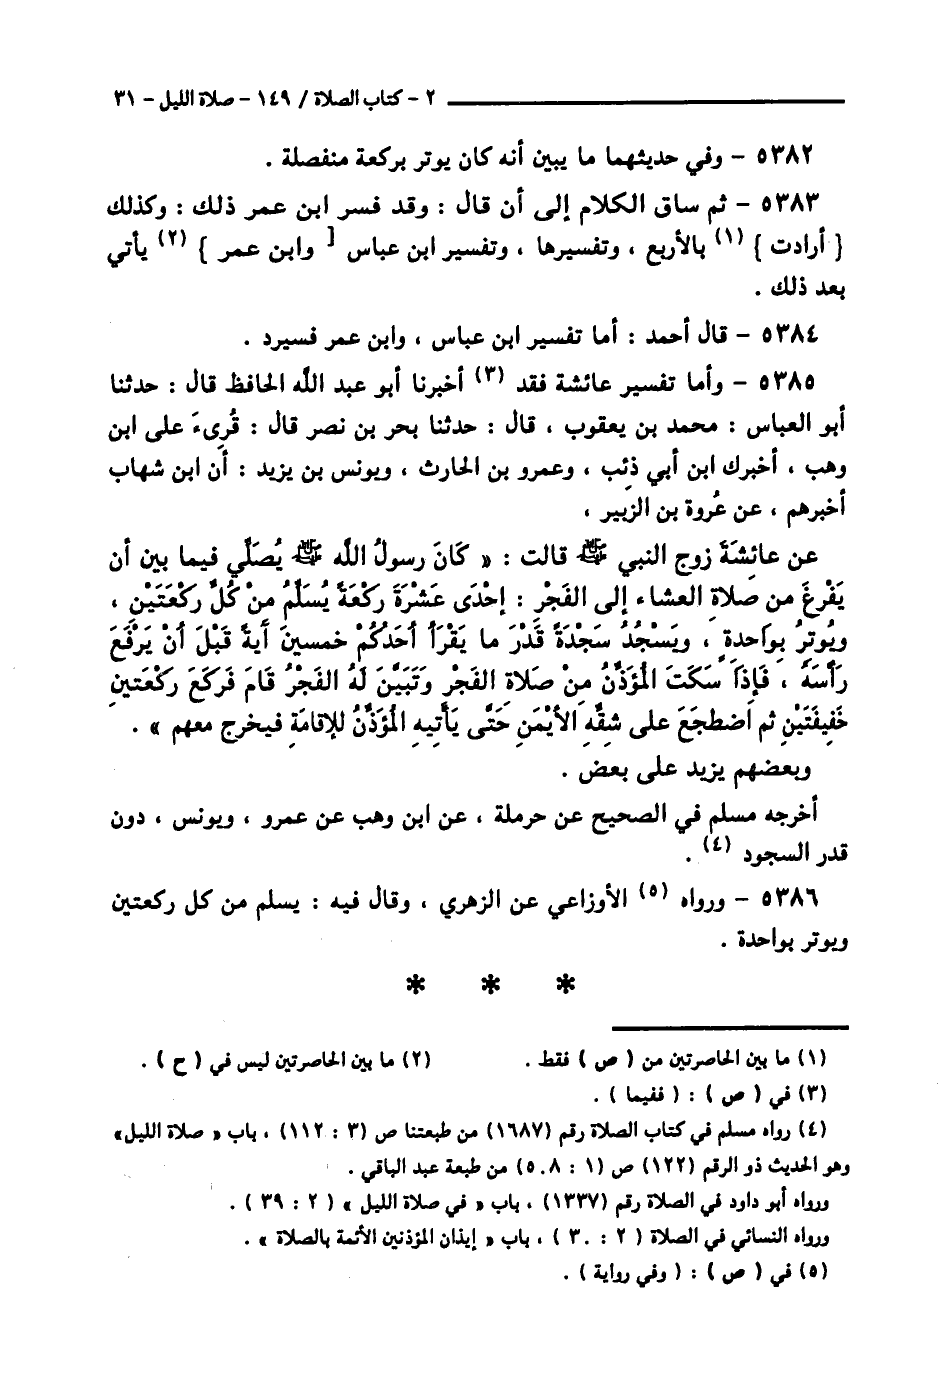 ٢ - كتاب الصلاة / ١٤٩ - صلاة الليل - ٣١
٥٣٨٢ - وفي حديثهما ما يبين أنه كان يوتر بركعة منفصلة .
٥٣٨٣ - ثم ساق الكلام إلى أن قال : وقد فسر ابن عمر ذلك : وكذلك
{ أرادت } (١) بالأربع ، وتفسيرها ، وتفسير ابن عباس [ وابن عمر } (٢) يأتي
بعد ذلك .
٥٣٨٤ - قال أحمد : أما تفسير ابن عباس ، وابن عمر فسيرد .
٥٣٨٥ - وأما تفسير عائشة فقد (٣) أخبرنا أبو عبد الله الحافظ قال : حدثنا
أبو العباس : محمد بن يعقوب ، قال : حدثنا بحر بن نصر قال : قُرِىءَ على ابن
وهب ، أخبرك ابن أبي ذئب ، وعمرو بن الحارث ، ويونس بن يزيد : أن ابن شهاب
أخبرهم ، عن عُروة بن الزبير ،
عن عائِشَةَ زوج النبي ﷺ قالت : « كَانَ رسولُ الله ﷺ يُصَلِّي فيما بين أن
يَفْرغَ من صَلاةِ العشاء إلى الفَجْرِ : إحْدَى عَشْرَةَ ركْعَةً يُسَلِّمُ منْ كُلِّ ركْعَتَيْنِ ،
ويُوتِرُ بوَاحدةٍ ، ويَسْجُدُ سَجْدَةً قَدْرَ ما يَقْرَأُ أحَدُكُمْ خمسينَ آيةً قَبْلَ أنْ يَرْفَعَ
رَأْسَهُ ، فَإذَا سَكَتَ المُؤَذِّنُ مِنْ صَلاة الفَجْرِ وَتَبَيَّنَ لَهُ الفَجْرُ قَامَ فَركَعَ ركْعَتينِ
خَفِيفَتَيْنِ ثم اضطَجَعَ على شقِّهِ الأيْمَنِ حَتَّى يَأتيهِ المُؤَذِّنُ للإقامَةِ فيخرج معهم » .
وبعضهم يزيد على بعض .
أخرجه مسلم في الصحيح عن حرملة ، عن ابن وهب عن عمرو ، ويونس ، دون
قدر السجود (٤) .
٥٣٨٦ - ورواه (٥) الأوزاعي عن الزهري ، وقال فيه : يسلم من كل ركعتين
ويوتر بواحدة .
* * *
(١) ما بين الحاصرتين من ( ص ) فقط . (٢) ما بين الحاصرتين ليس في ( ح ) .
(٣) في ( ص ) : ( ففيما ) .
(٤) رواه مسلم في كتاب الصلاة رقم (١٦٨٧) من طبعتنا ص (٣ : ١١٢) ، باب « صلاة الليل»
وهو الحديث ذو الرقم (١٢٢) ص (١ : ٥٠٨) من طبعة عبد الباقي .
ورواه أبو داود في الصلاة رقم (١٣٣٧) ، باب « في صلاة الليل » ( ٢ : ٣٩ ) .
ورواه النسائي في الصلاة ( ٢ : ٣٠ ) ، باب « إيذان المؤذنين الأئمة بالصلاة » .
(٥) في ( ص ) : ( وفي رواية ) .